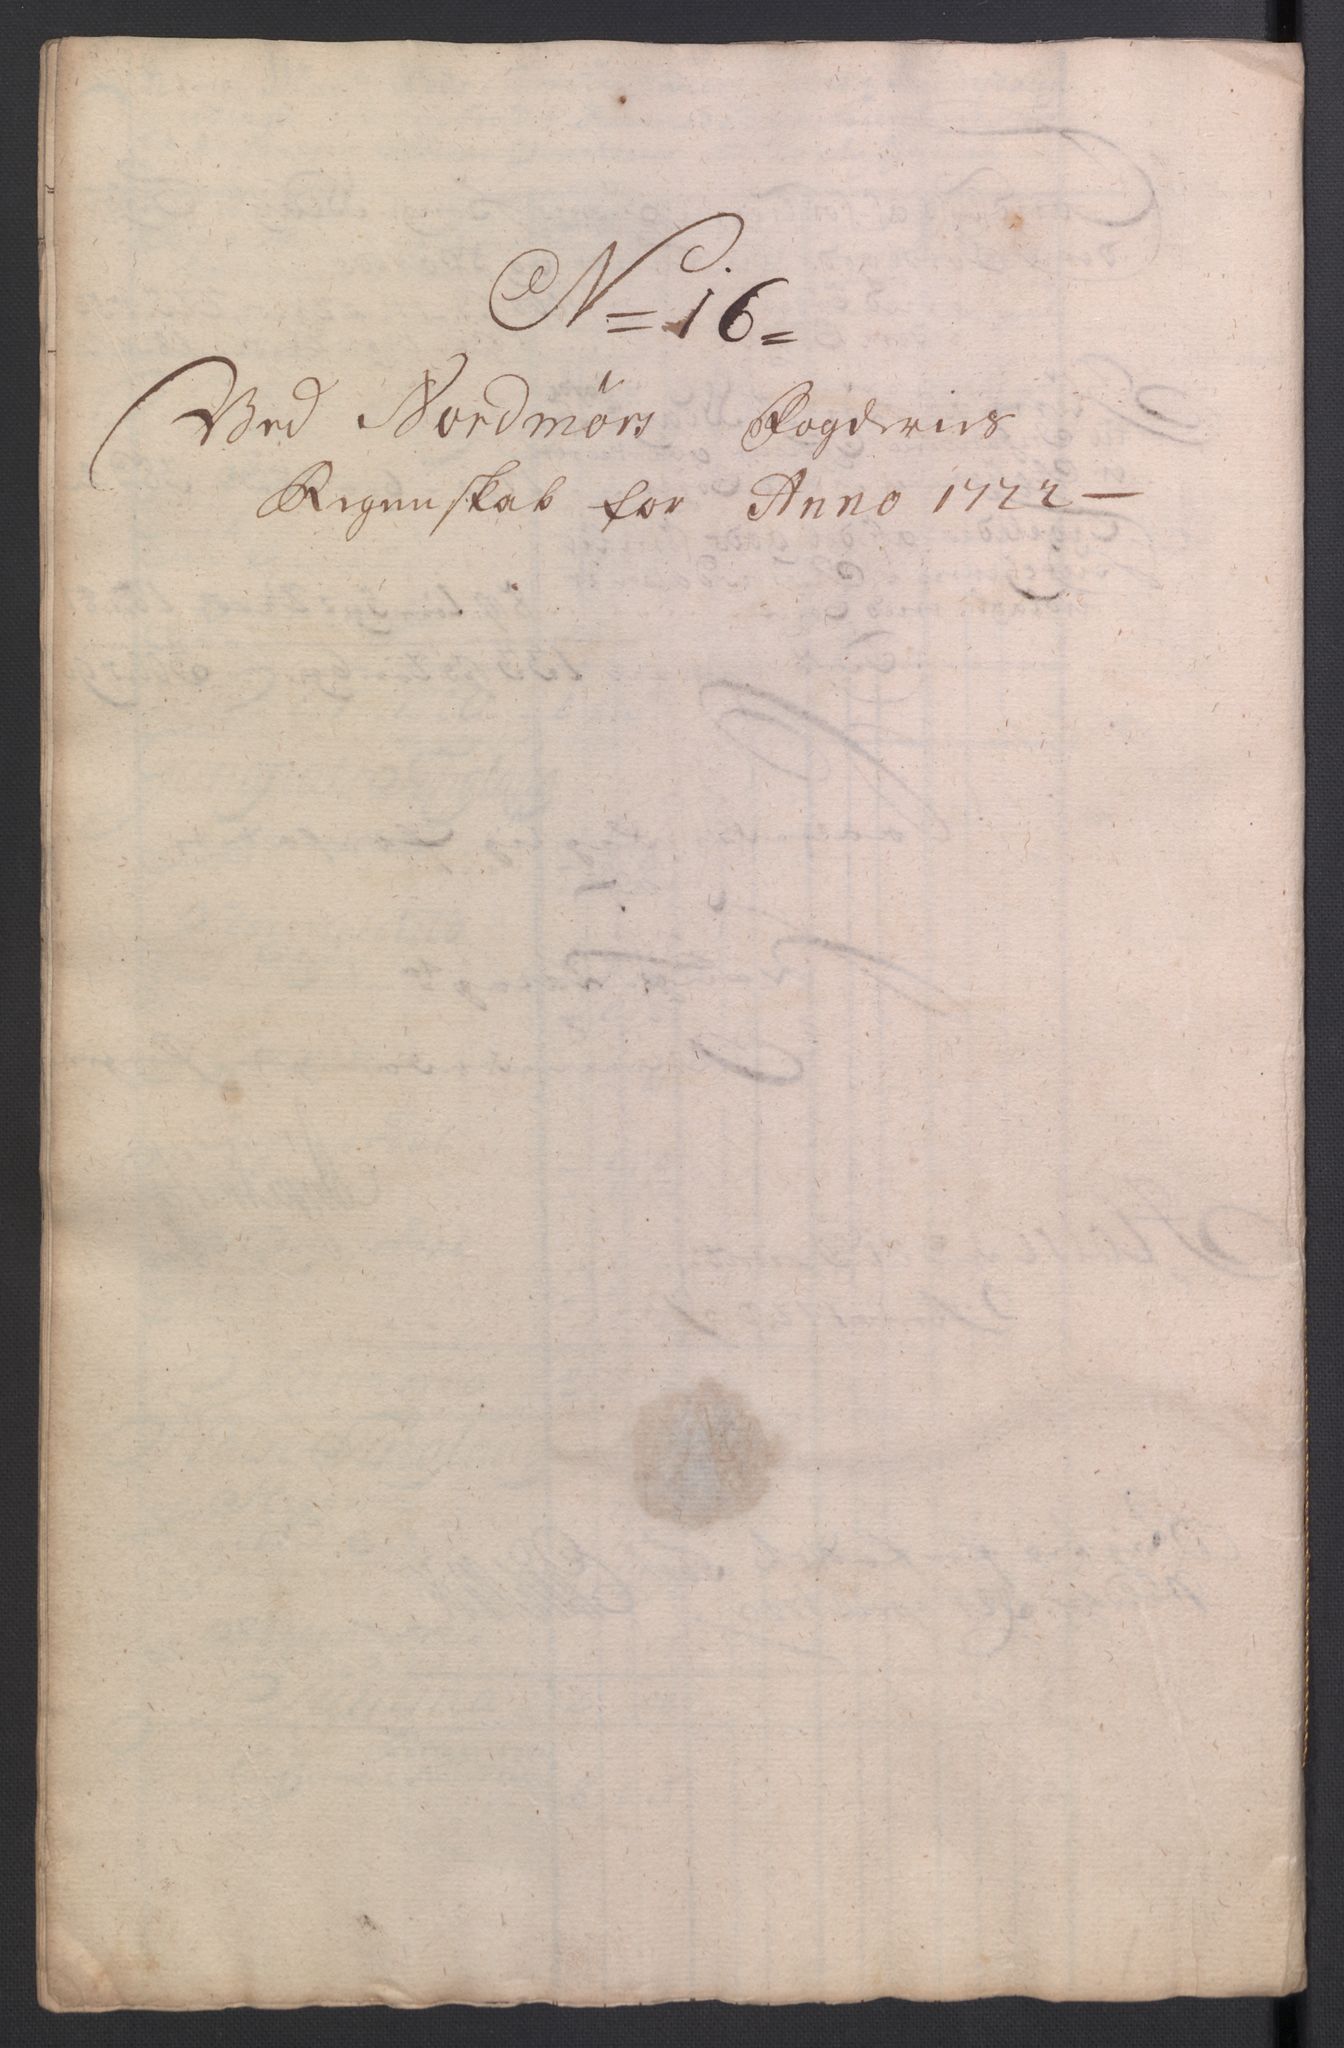 N= 16=
Ved Nordmørs Fogderies
Regenskab for Anno 1722 —